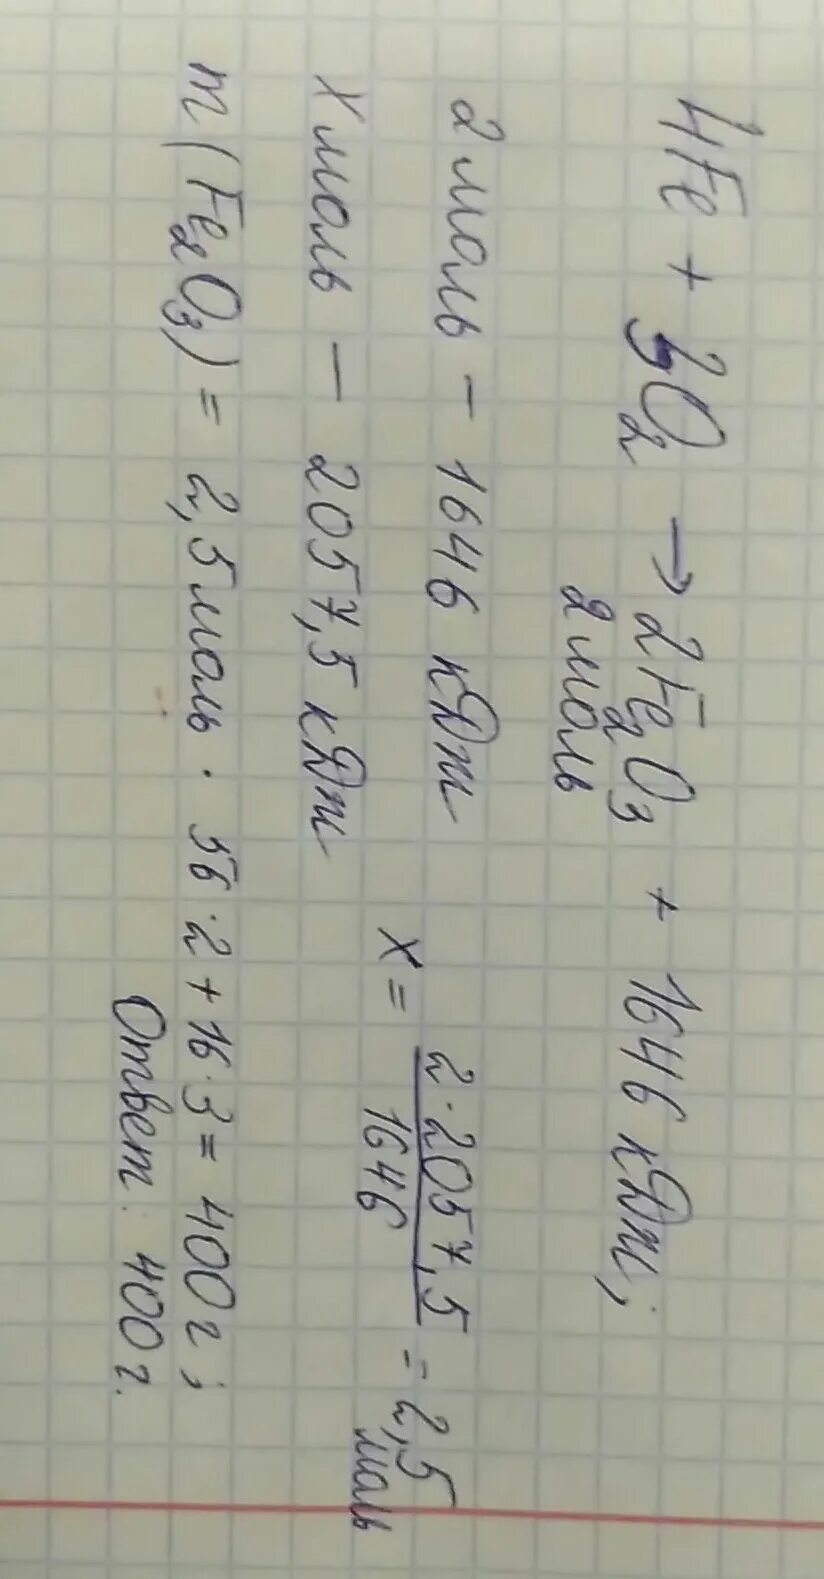 4Fe + 3O₂ → 2Fe₂O₃ + 1646 кДж;
2 моль
2 моль – 1646 кДж
x моль – 2057,5 кДж
x = 2·2057,5 / 1646 = 2,5 моль
m(Fe₂O₃) = 2,5 моль · 56·2+16·3 = 400 г;
Ответ: 400 г.